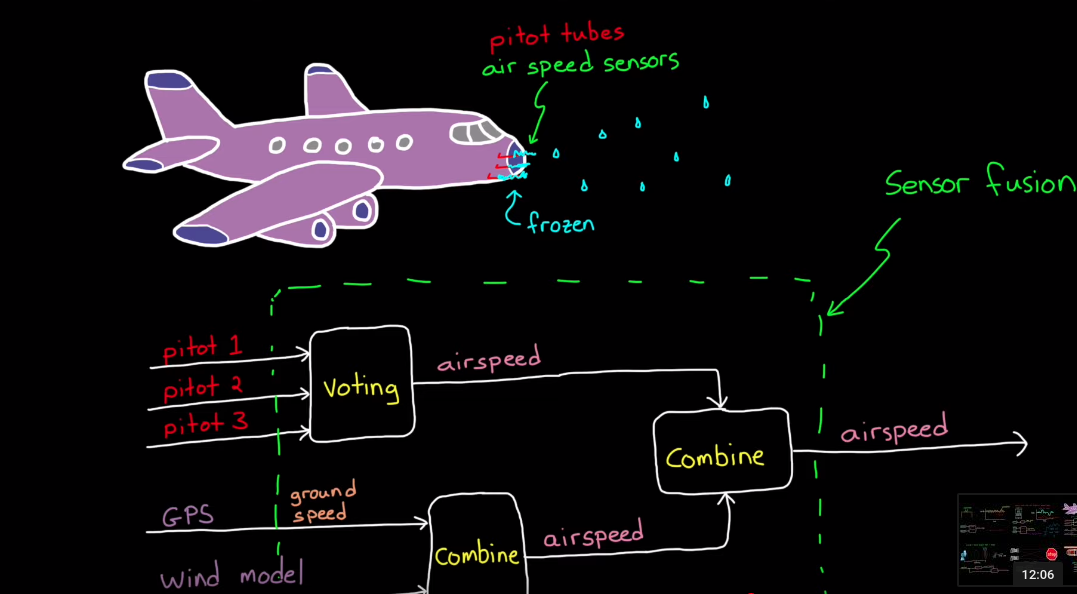 pitot tubes
air speed sensors
frozen
Sensor fusion
pitot 1
pitot 2
pitot 3
Voting
airspeed
Combine
airspeed
GPS
ground
speed
wind model
Combine
airspeed
12:06